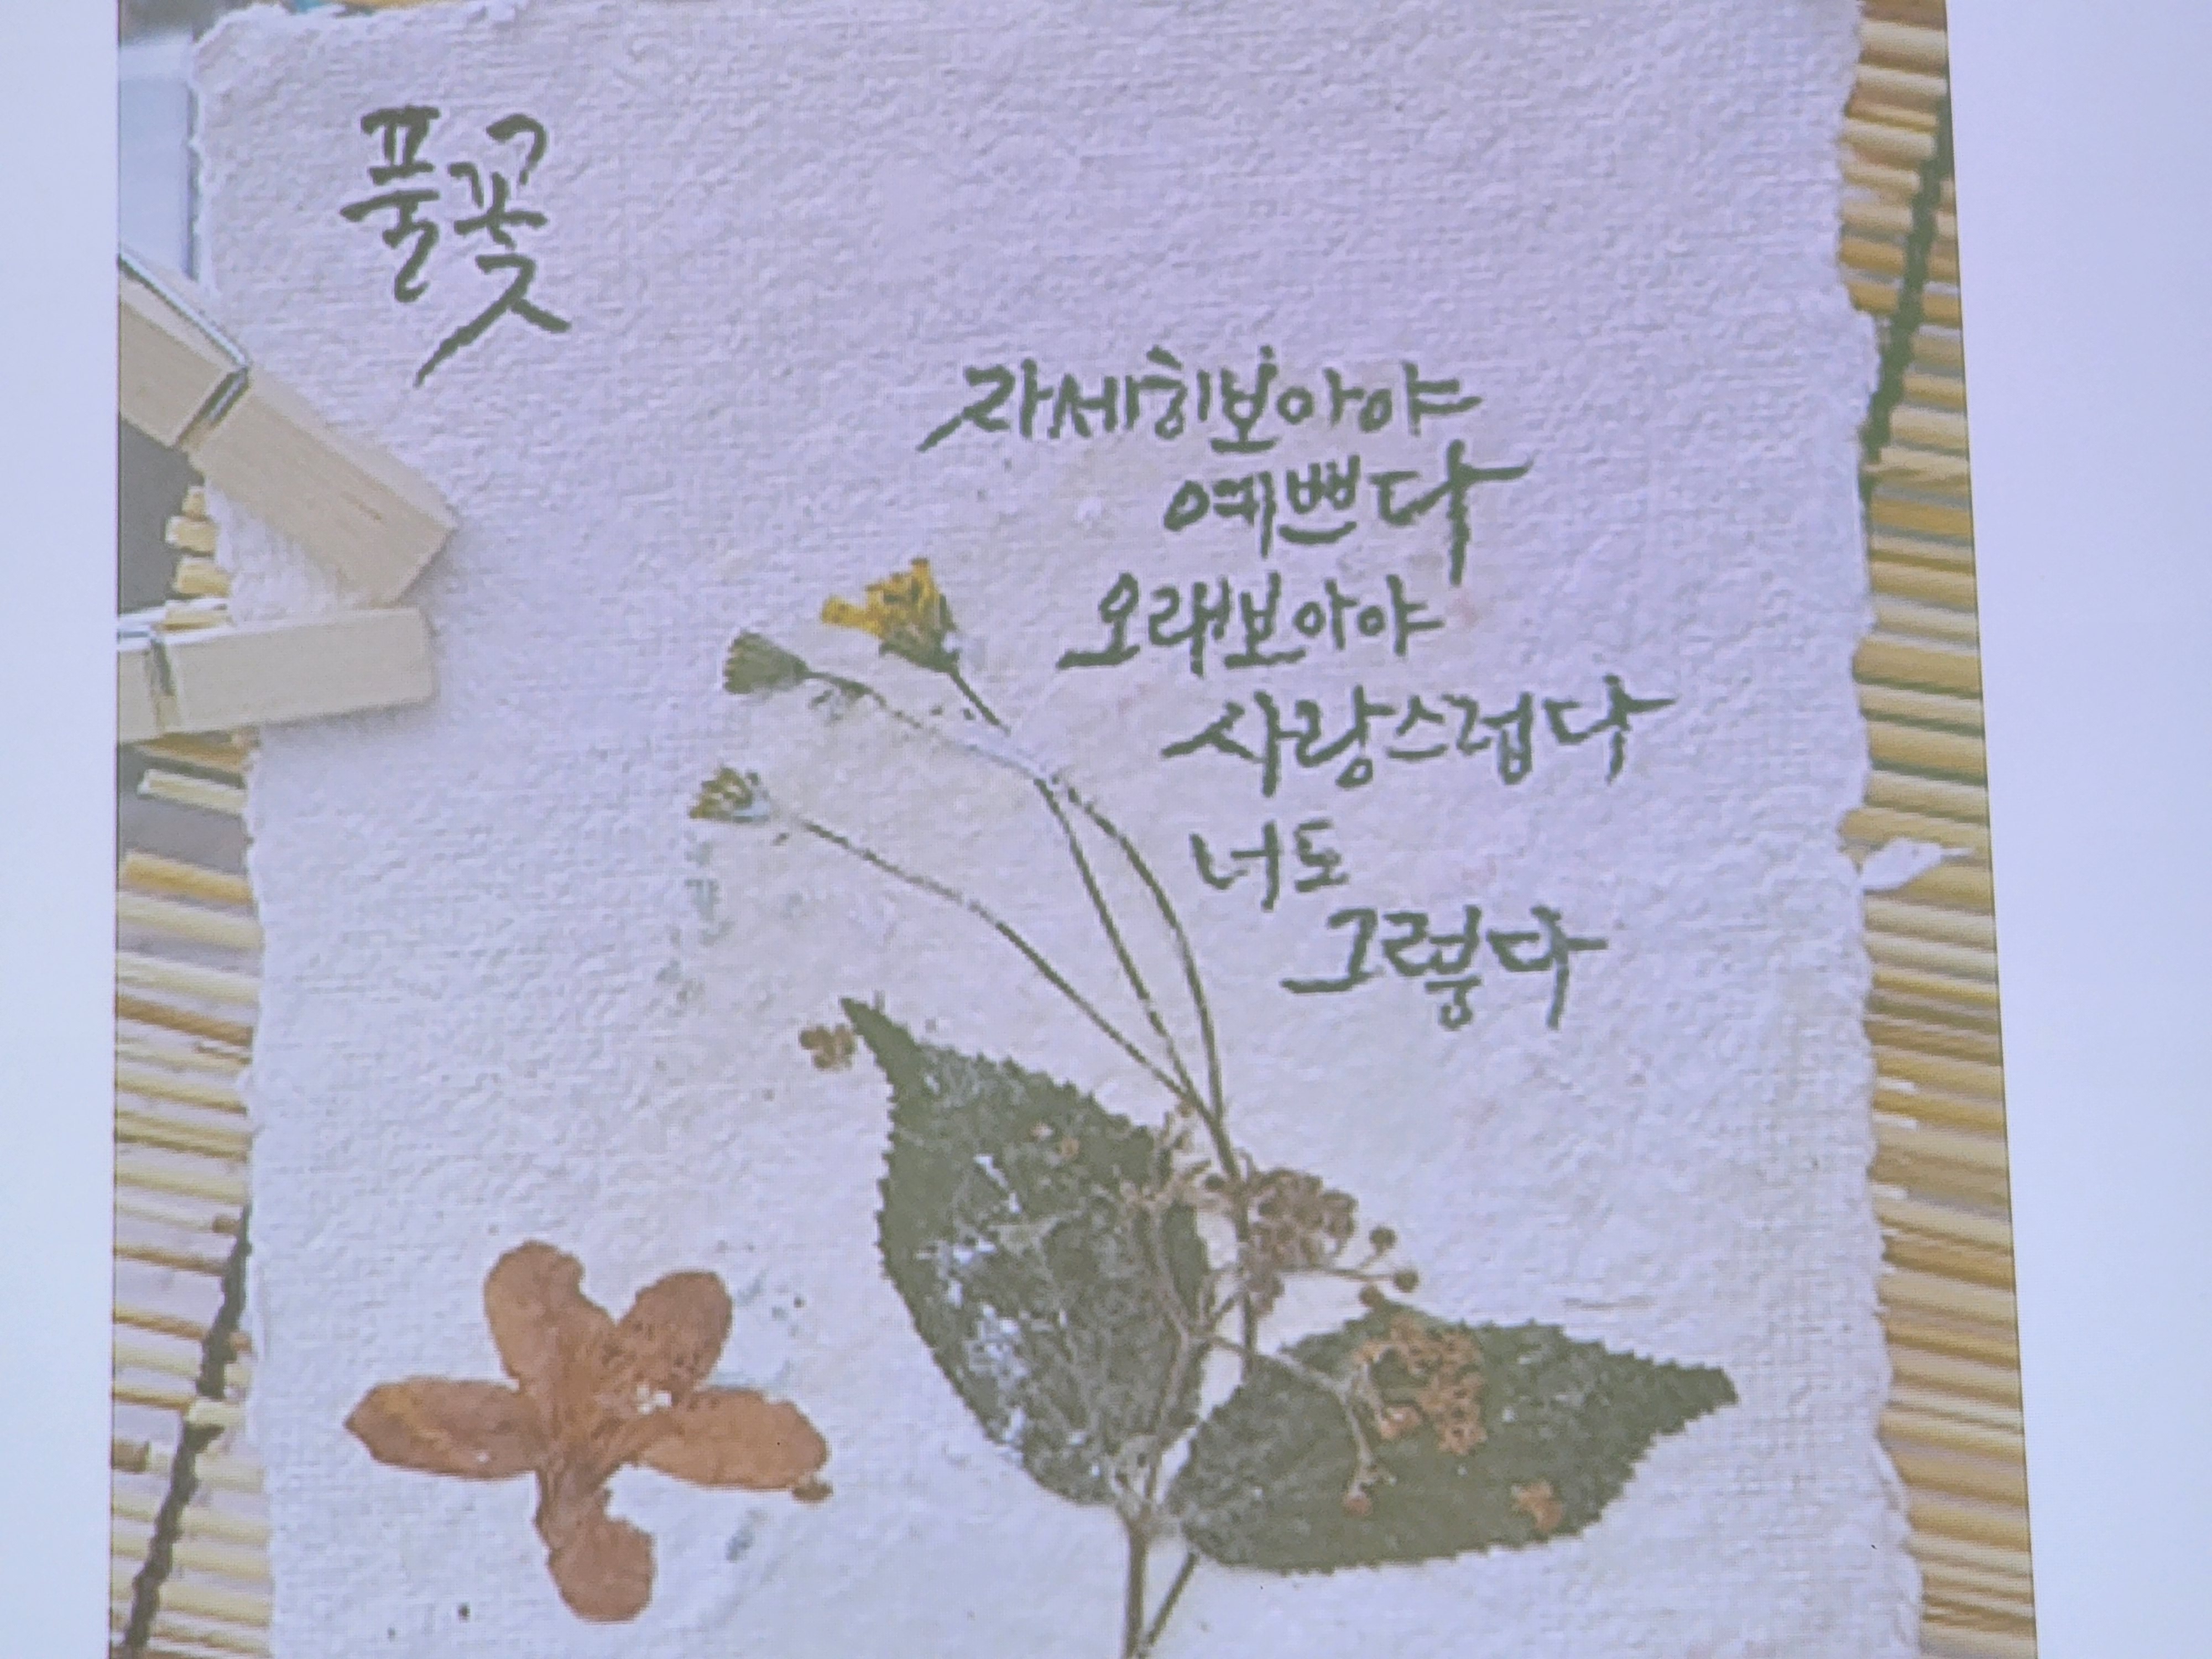 풀꽃
자세히보아야
예쁘다
오래보아야
사랑스럽다
너도
그렇다